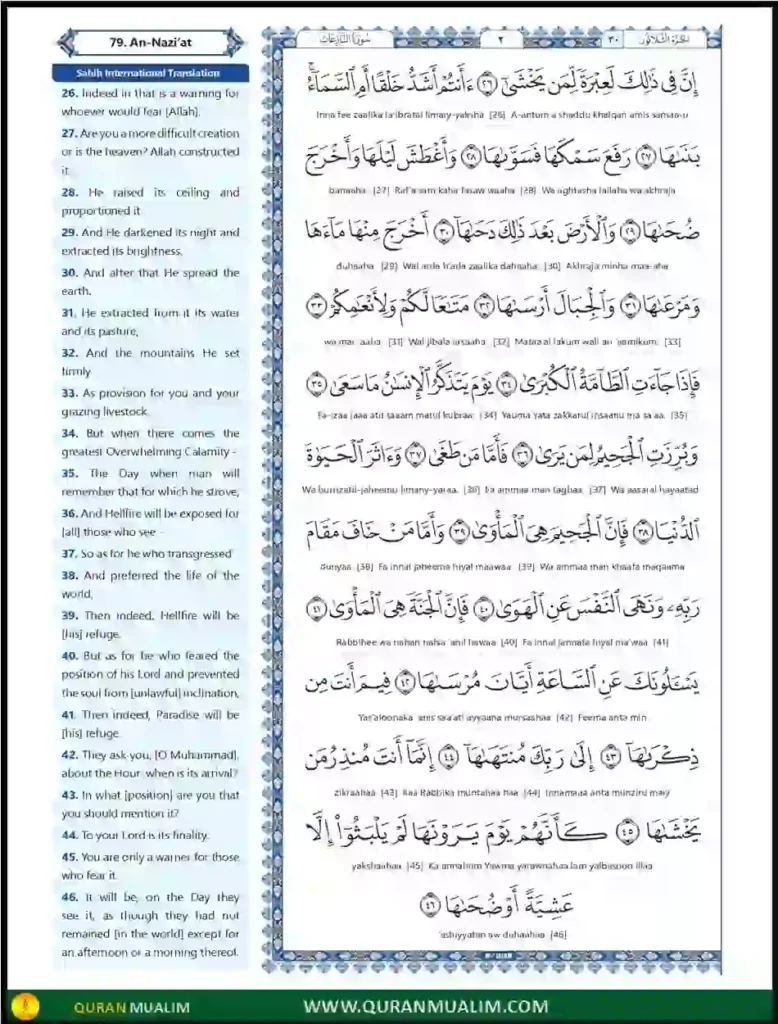 79. An-Nazi'at
Sahih International Translation
26. Indeed in that is a warning for
whoever would fear [Allah].
27. Are you a more difficult creation
or is the heaven? Allah constructed
it.
28. He raised its ceiling and
proportioned it
29. And He darkened its night and
extracted its brightness.
30. And after that He spread the
earth.
31. He extracted from it its water
and its pasture,
32. And the mountains He set
firmly
33. As provision for you and your
grazing livestock.
34. But when there comes the
greatest Overwhelming Calamity -
35. The Day when man will
remember that for which he strove,
36. And Hellfire will be exposed for
[all] those who see -
37. So as for he who transgressed
38. And preferred the life of the
world,
39. Then indeed, Hellfire will be
[his] refuge.
40. But as for he who feared the
position of his Lord and prevented
the soul from [unlawful] inclination,
41. Then indeed, Paradise will be
[his] refuge.
42. They ask you, [O Muhammad],
about the Hour: when is its arrival?
43. In what [position] are you that
you should mention it?
44. To your Lord is its finality.
45. You are only a warner for those
who fear it.
46. It will be, on the Day they
see it, as though they had not
remained [in the world] except for
an afternoon or a morning thereof.
سورة النازعات ٢ ٣٠ الجزء الثلاثون
إِنَّ فِي ذَٰلِكَ لَعِبْرَةً لِّمَن يَخْشَىٰٓ ٢٦ ءَأَنتُمْ أَشَدُّ خَلْقًا أَمِ ٱلسَّمَآءُ ۚ
Inna fee zaalika la'ibratal limaiy-yaksha [26] A-antum a shaddu khalqan amis samaa-u
بَنَىٰهَا ٢٧ رَفَعَ سَمْكَهَا فَسَوَّىٰهَا ٢٨ وَأَغْطَشَ لَيْلَهَا وَأَخْرَجَ
banaaha [27] Raf'a sam kaha fasaw waaha [28] Wa aghtasha lailaha wa akhraja
ضُحَىٰهَا ٢٩ وَٱلْأَرْضَ بَعْدَ ذَٰلِكَ دَحَىٰهَآ ٣٠ أَخْرَجَ مِنْهَا مَآءَهَا
duhaaha [29] Wal arda b'ada zaalika dahaaha. [30] Akhraja minha maa-aha
وَمَرْعَىٰهَا ٣١ وَٱلْجِبَالَ أَرْسَىٰهَا ٣٢ مَتَٰعًا لَّكُمْ وَلِأَنْعَٰمِكُمْ ٣٣
wa mar aaha [31] Wal jibala arsaaha [32] Mataa'al lakum wali an 'aamikum. [33]
فَإِذَا جَآءَتِ ٱلطَّآمَّةُ ٱلْكُبْرَىٰ ٣٤ يَوْمَ يَتَذَكَّرُ ٱلْإِنسَٰنُ مَا سَعَىٰ ٣٥
Fa-izaa jaaa atit taaam matul kubraa. [34] Yauma Yata zakkarul insaanu ma sa aa. [35]
وَبُرِّزَتِ ٱلْجَحِيمُ لِمَن يَرَىٰ ٣٦ فَأَمَّا مَن طَغَىٰ ٣٧ وَءَاثَرَ ٱلْحَيَوٰةَ
Wa burrizatil-jaheemu limany-yaraa. [36] Fa ammaa man taghaa. [37] Wa aasaral hayaatad
ٱلدُّنْيَا ٣٨ فَإِنَّ ٱلْجَحِيمَ هِيَ ٱلْمَأْوَىٰ ٣٩ وَأَمَّا مَنْ خَافَ مَقَامَ
dunyaa [38] Fa innal jaheema hiyal maawaa. [39] Wa ammaa man khaafa maqaama
رَبِّهِۦ وَنَهَى ٱلنَّفْسَ عَنِ ٱلْهَوَىٰ ٤٠ فَإِنَّ ٱلْجَنَّةَ هِيَ ٱلْمَأْوَىٰ ٤١
Rabbihee wa nahan nafsa 'anil hawaa. [40] Fa innal jannata hiyal ma'waa [41]
يَسْـَٔلُونَكَ عَنِ ٱلسَّاعَةِ أَيَّانَ مُرْسَىٰهَا ٤٢ فِيمَ أَنتَ مِن
Yas'aloonaka 'anis saa'ati ayyaana mursaahaa [42] Feema anta min
ذِكْرَىٰهَآ ٤٣ إِلَىٰ رَبِّكَ مُنتَهَىٰهَآ ٤٤ إِنَّمَآ أَنتَ مُنذِرُ مَن
zikraahaa [43] Ilaa Rabbika muntahaa haa [44] Innamaaa anta munziru maiy
يَخْشَىٰهَا ٤٥ كَأَنَّهُمْ يَوْمَ يَرَوْنَهَا لَمْ يَلْبَثُوٓا۟ إِلَّا
yakshaahaa [45] Ka annahum Yawma yarawnahaa lam yalbasooo illaa
عَشِيَّةً أَوْ ضُحَىٰهَا ٤٦
'ashiyyatan aw duhaahaa [46]
QURAN MUALIM WWW.QURANMUALIM.COM